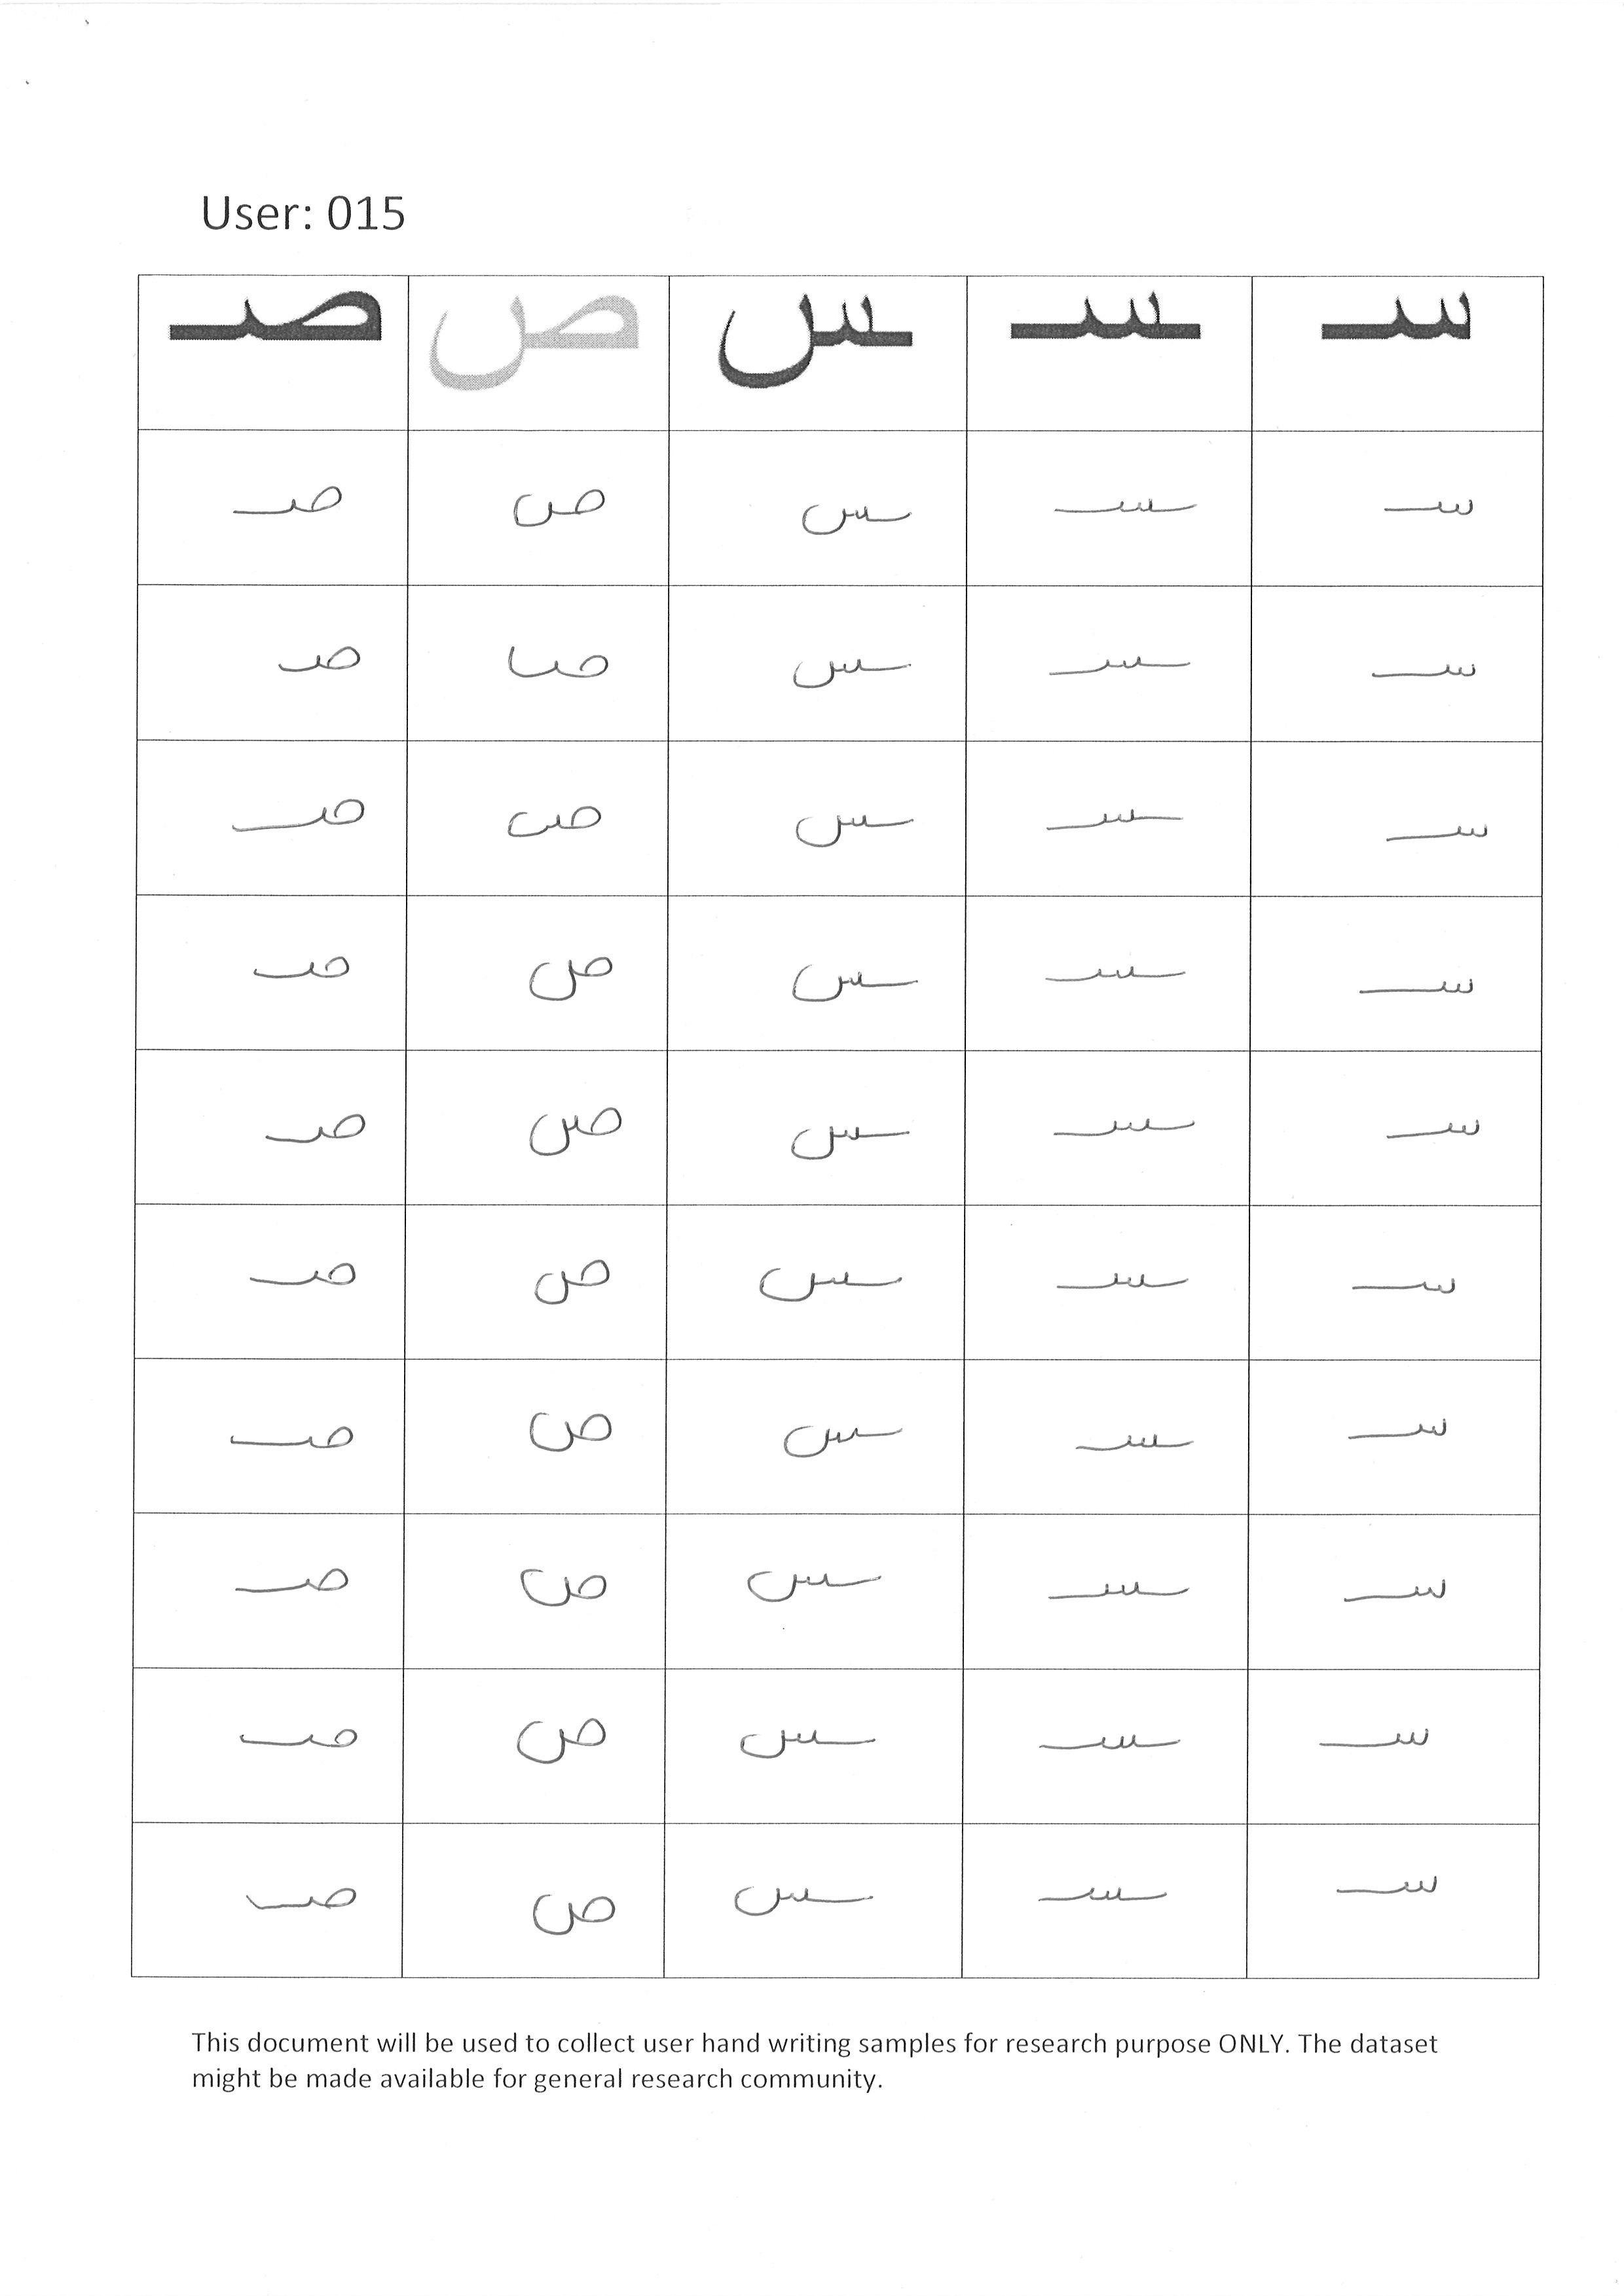 User: 015
سـ ـسـ ـس ص صـ
سـ ـسـ ـس ص صـ
سـ ـسـ ـس ص صـ
سـ ـسـ ـس ص صـ
سـ ـسـ ـس ص صـ
سـ ـسـ ـس ص صـ
سـ ـسـ ـس ص صـ
سـ ـسـ ـس ص صـ
سـ ـسـ ـس ص صـ
سـ ـسـ ـس ص صـ
سـ ـسـ ـس ص صـ
This document will be used to collect user hand writing samples for research purpose ONLY. The dataset
might be made available for general research community.